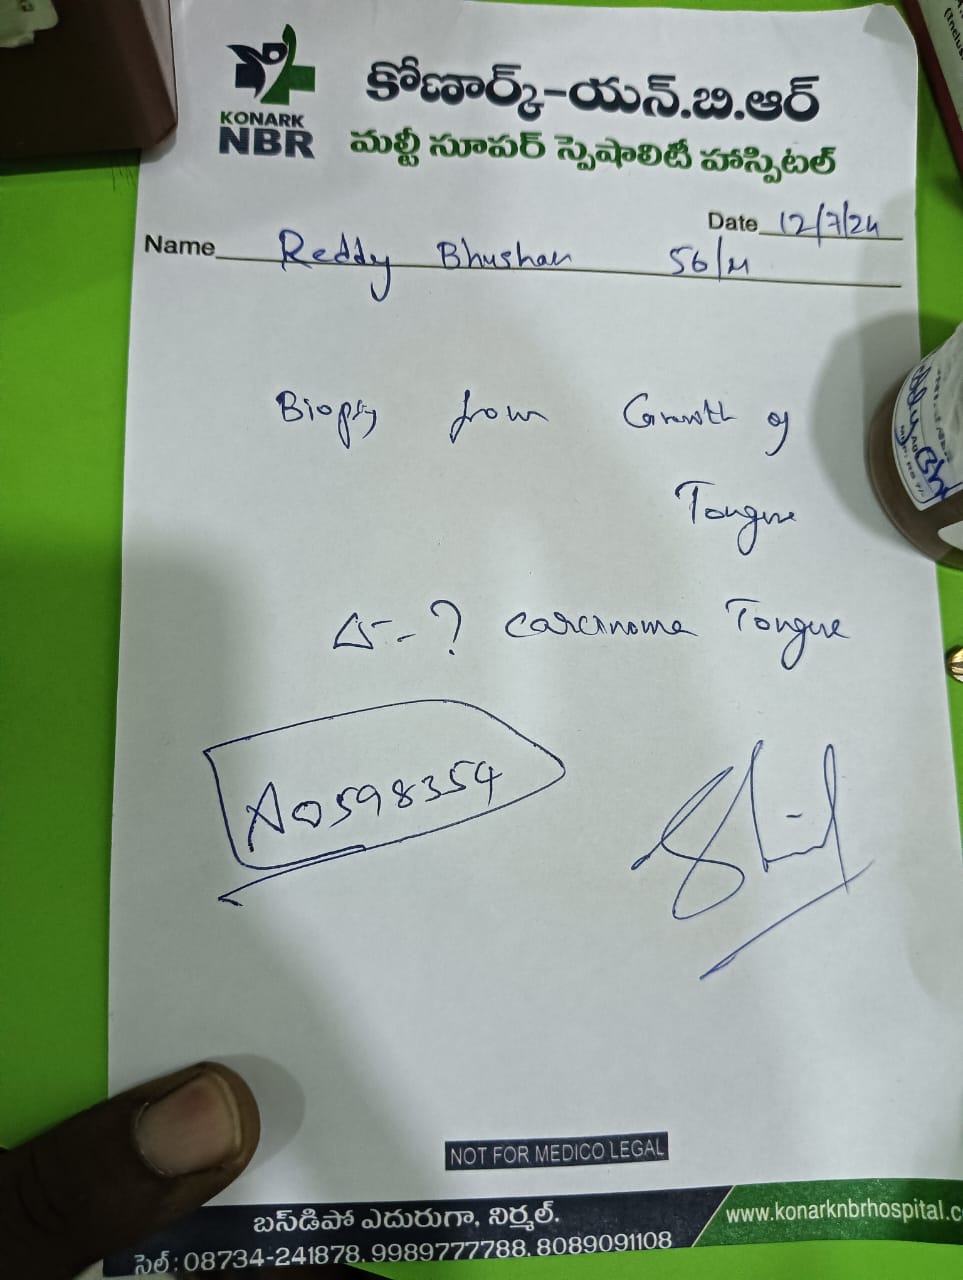 KONARK
NBR
కోణార్క్-యన్.బి.ఆర్
మల్టీ సూపర్ స్పెషాలిటీ హాస్పిటల్
Date 12/7/24
Name Reddy Bhushan 56/M
Biopsy from Growth of
Tongue
Δ- ? Carcinoma Tongue
A0598354
NOT FOR MEDICO LEGAL
బస్‌డిపో ఎదురుగా, నిర్మల్.
సెల్ : 08734-241878, 9989777788, 8089091108
www.konarknbrhospital.c